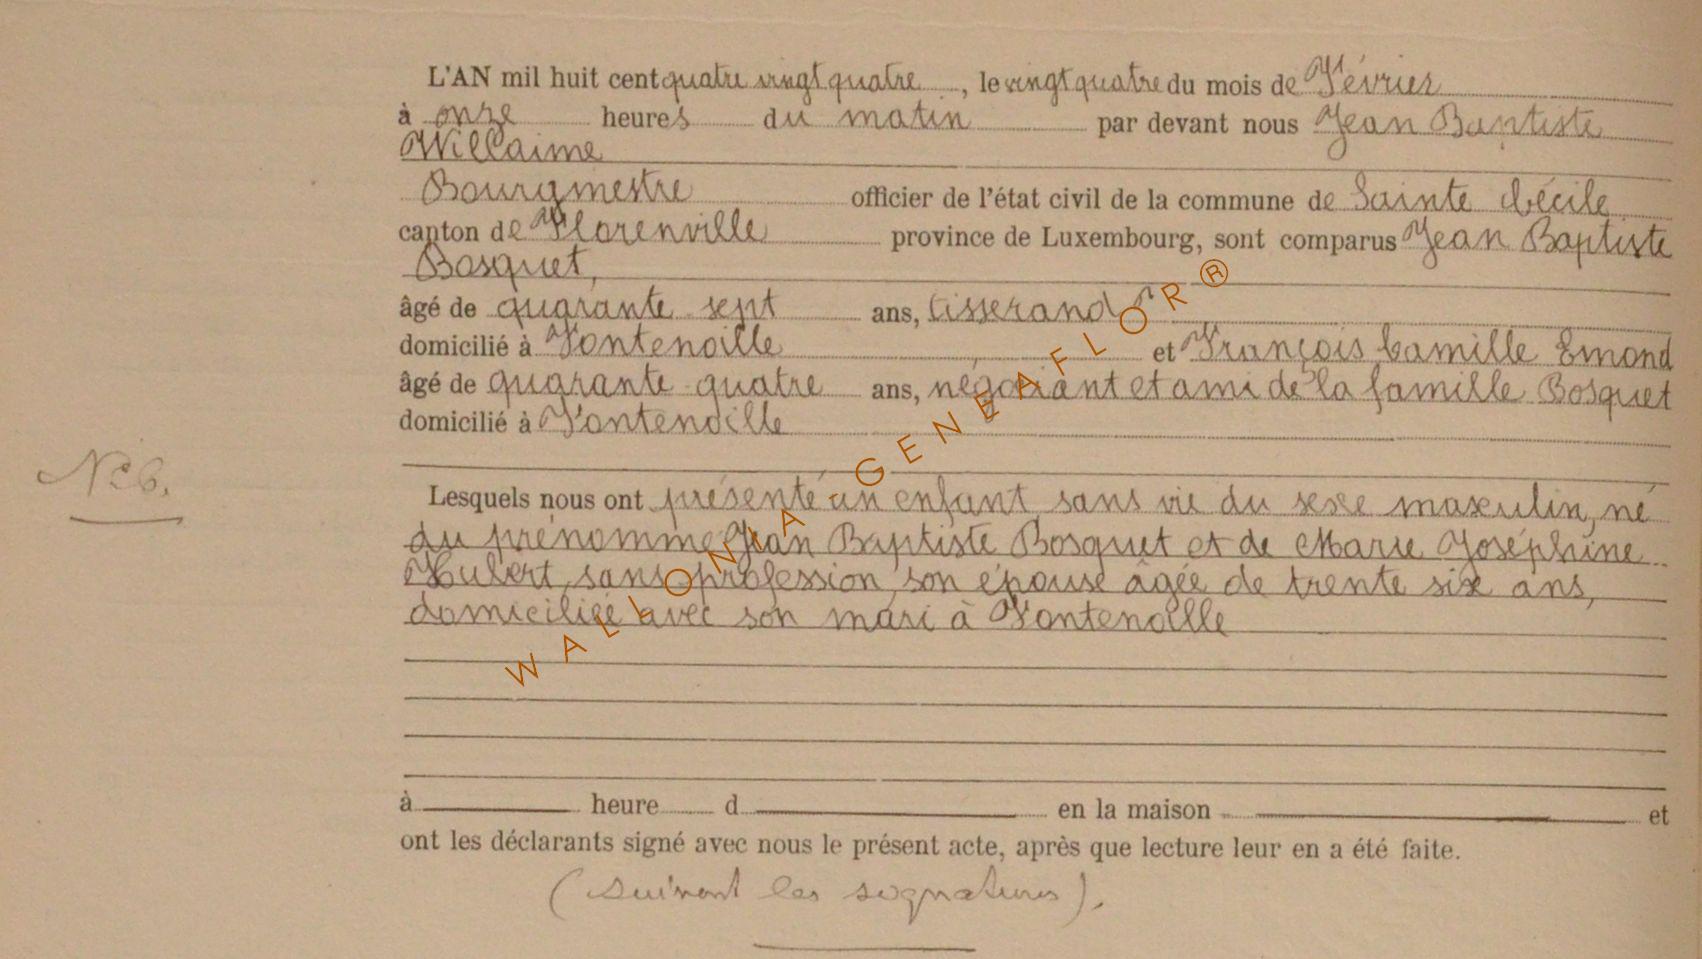 L'AN mil huit cent quatre vingt quatre, le vingt quatre du mois de Février
à onze heures du matin par devant nous Jean Baptiste
Willaime
Bourgmestre officier de l'état civil de la commune de Sainte Cécile
canton de Florenville province de Luxembourg, sont comparus Jean Baptiste
Bosquet,
âgé de quarante sept ans, tisserand
domicilié à Fontenoille et François Camille Emond
âgé de quarante quatre ans, négociant et ami de la famille Bosquet
domicilié à Fontenoille
N° 6.
Lesquels nous ont présenté un enfant sans vie du sexe masculin, né
du prénommé Jean Baptiste Bosquet et de Marie Joséphine
Hubert, sans profession, son épouse âgée de trente six ans,
domiciliée avec son mari à Fontenoille
à heure d en la maison et
ont les déclarants signé avec nous le présent acte, après que lecture leur en a été faite.
(suivent les signatures).
WALLONIA - GENEAFLOR®